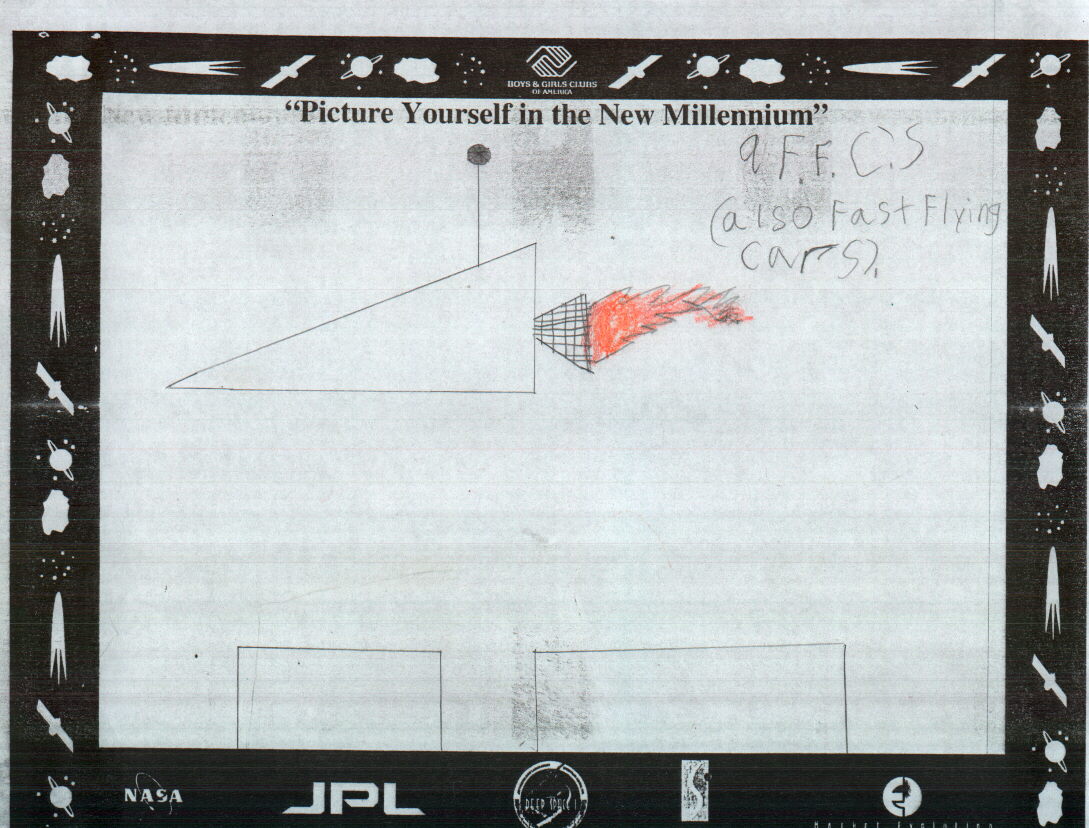 BOYS & GIRLS CLUBS
OF AMERICA
“Picture Yourself in the New Millennium”
9 F.F. C.'S
(also Fast Flying
cars).
NASA
JPL
DEEP SPACE 1